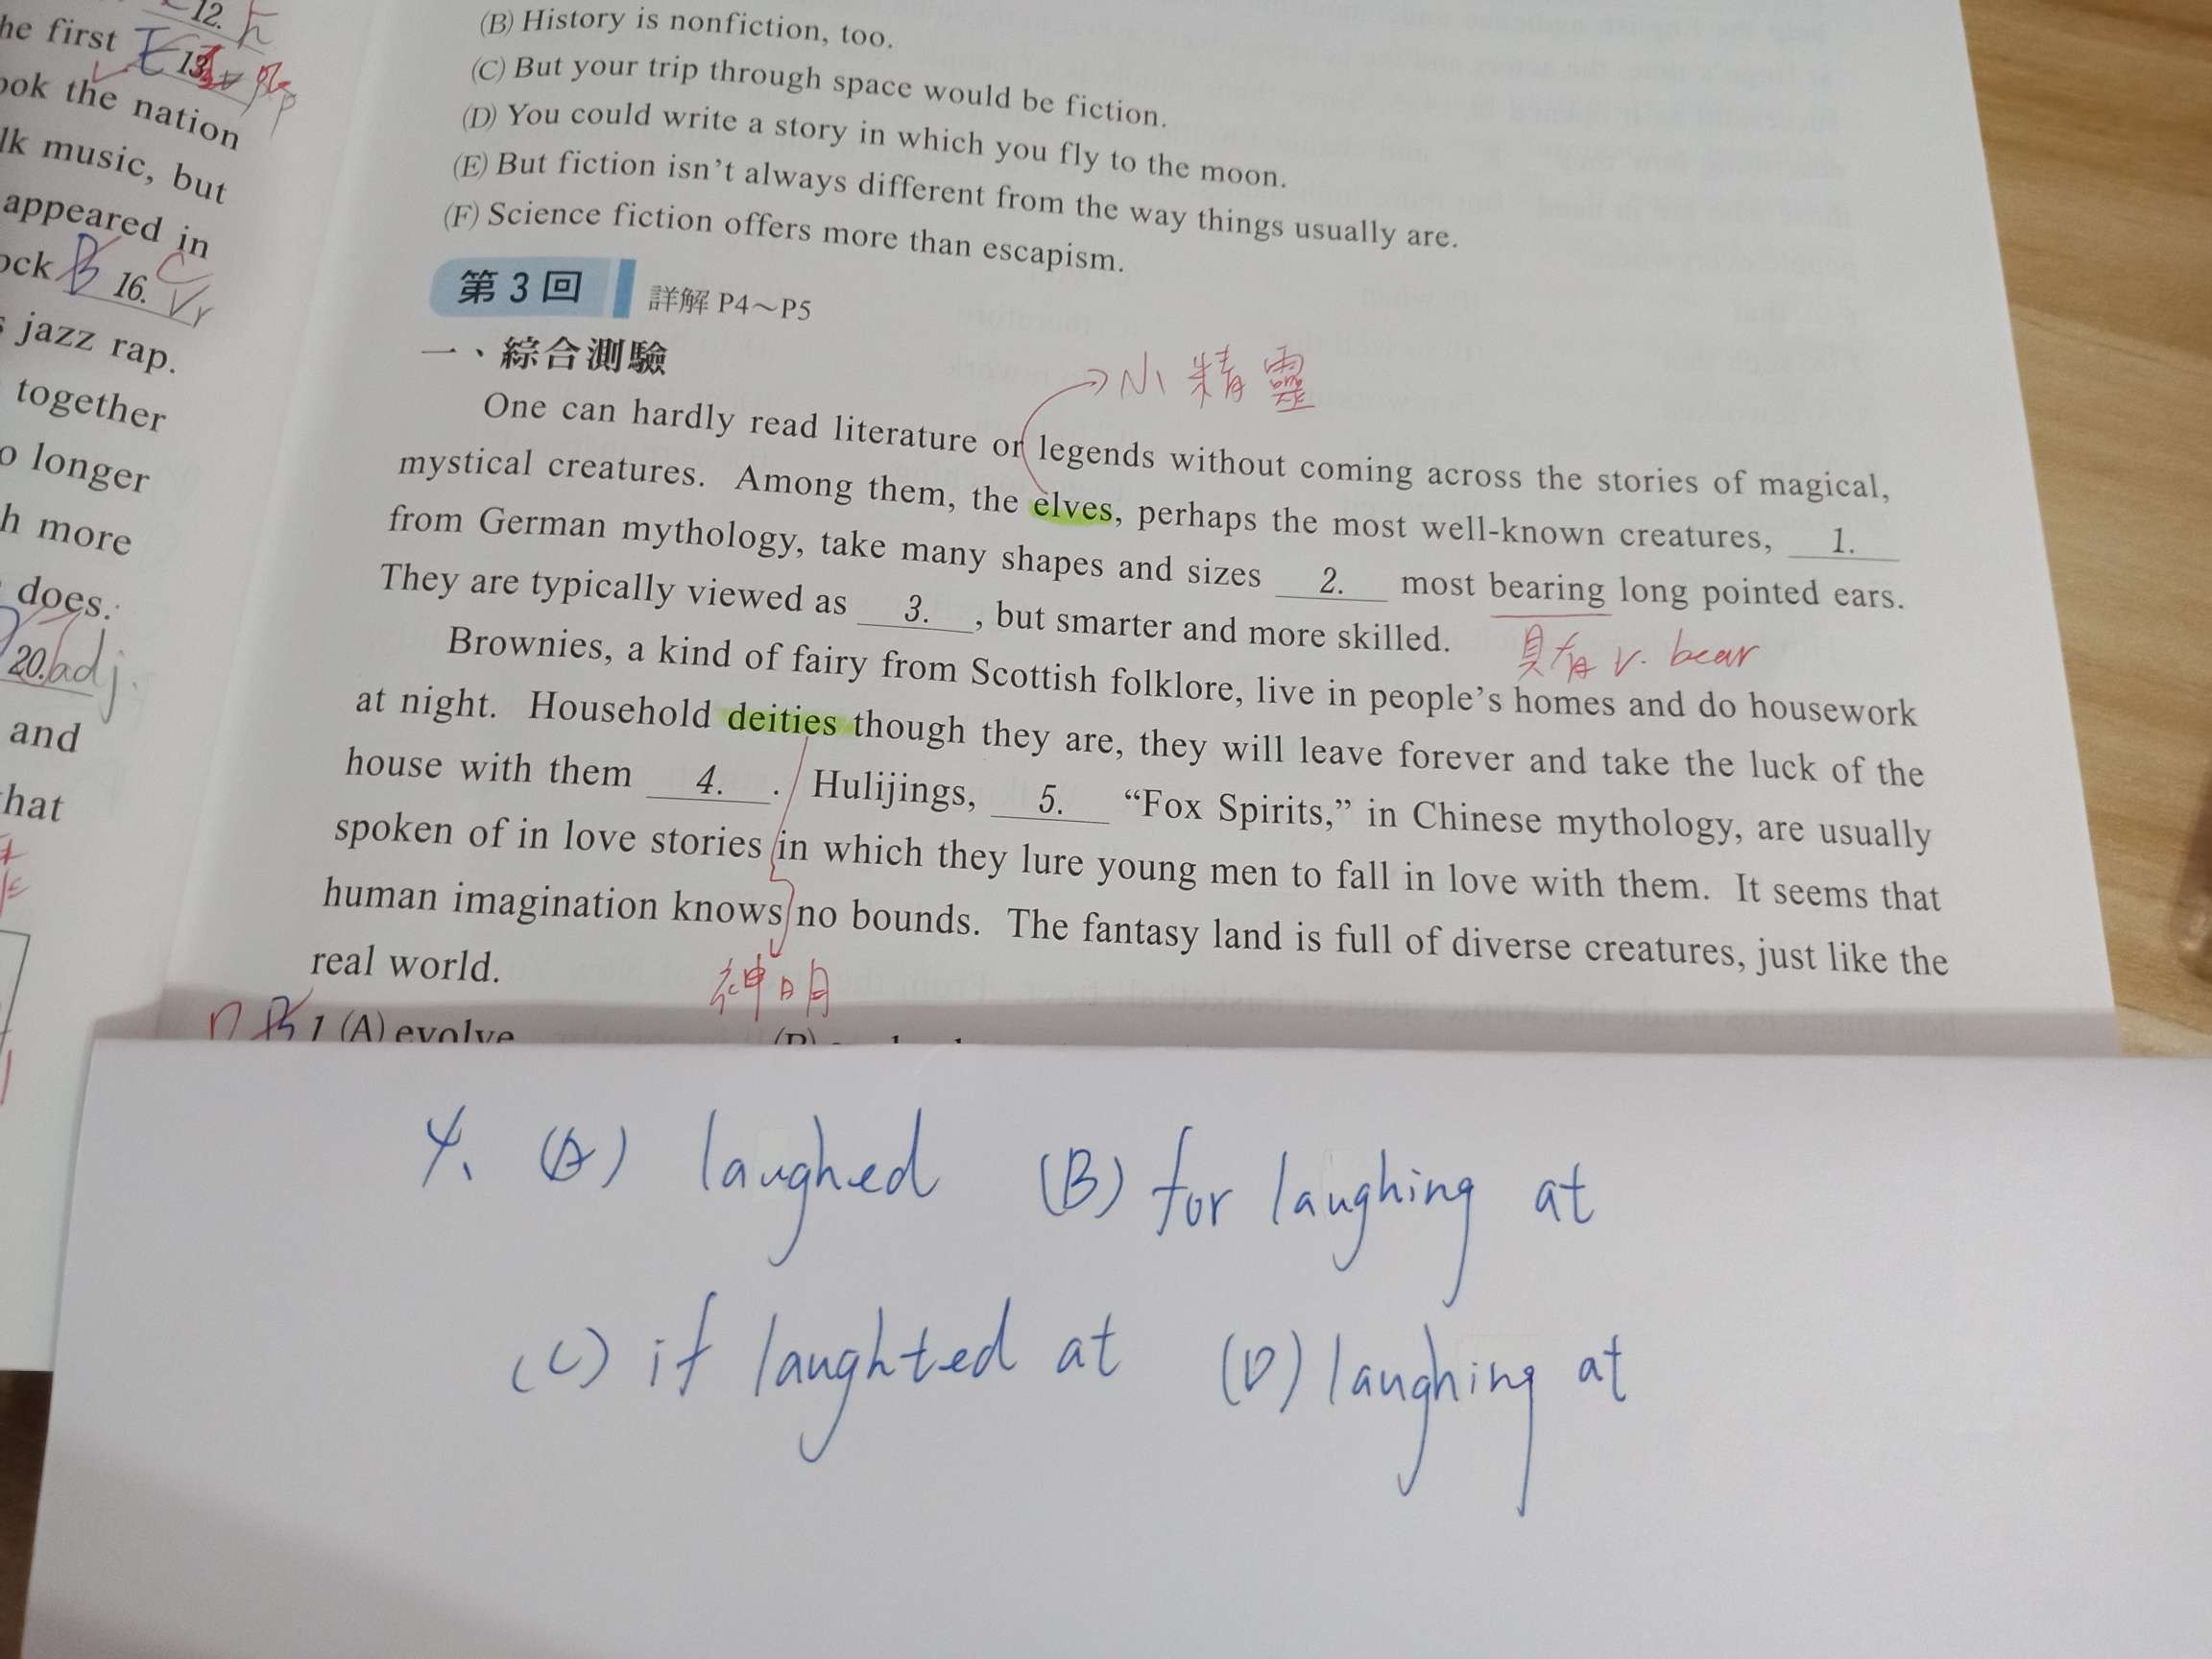 12.
he first 13.
ook the nation
lk music, but
appeared in
ock B 16.
jazz rap.
together
o longer
h more
does.
20. adj.
and
hat
(B) History is nonfiction, too.
(C) But your trip through space would be fiction.
(D) You could write a story in which you fly to the moon.
(E) But fiction isn't always different from the way things usually are.
(F) Science fiction offers more than escapism.
第3回 詳解 P4～P5
一、綜合測驗
小精靈
One can hardly read literature or legends without coming across the stories of magical,
mystical creatures. Among them, the elves, perhaps the most well-known creatures, 1.
from German mythology, take many shapes and sizes 2. most bearing long pointed ears.
They are typically viewed as 3. , but smarter and more skilled.
具有 v. bear
Brownies, a kind of fairy from Scottish folklore, live in people's homes and do housework
at night. Household deities though they are, they will leave forever and take the luck of the
house with them 4. . Hulijings, 5. “Fox Spirits,” in Chinese mythology, are usually
spoken of in love stories in which they lure young men to fall in love with them. It seems that
human imagination knows no bounds. The fantasy land is full of diverse creatures, just like the
real world.
神明
1 (A) evolve
4. (A) laughed (B) for laughing at
(C) if laughted at (D) laughing at